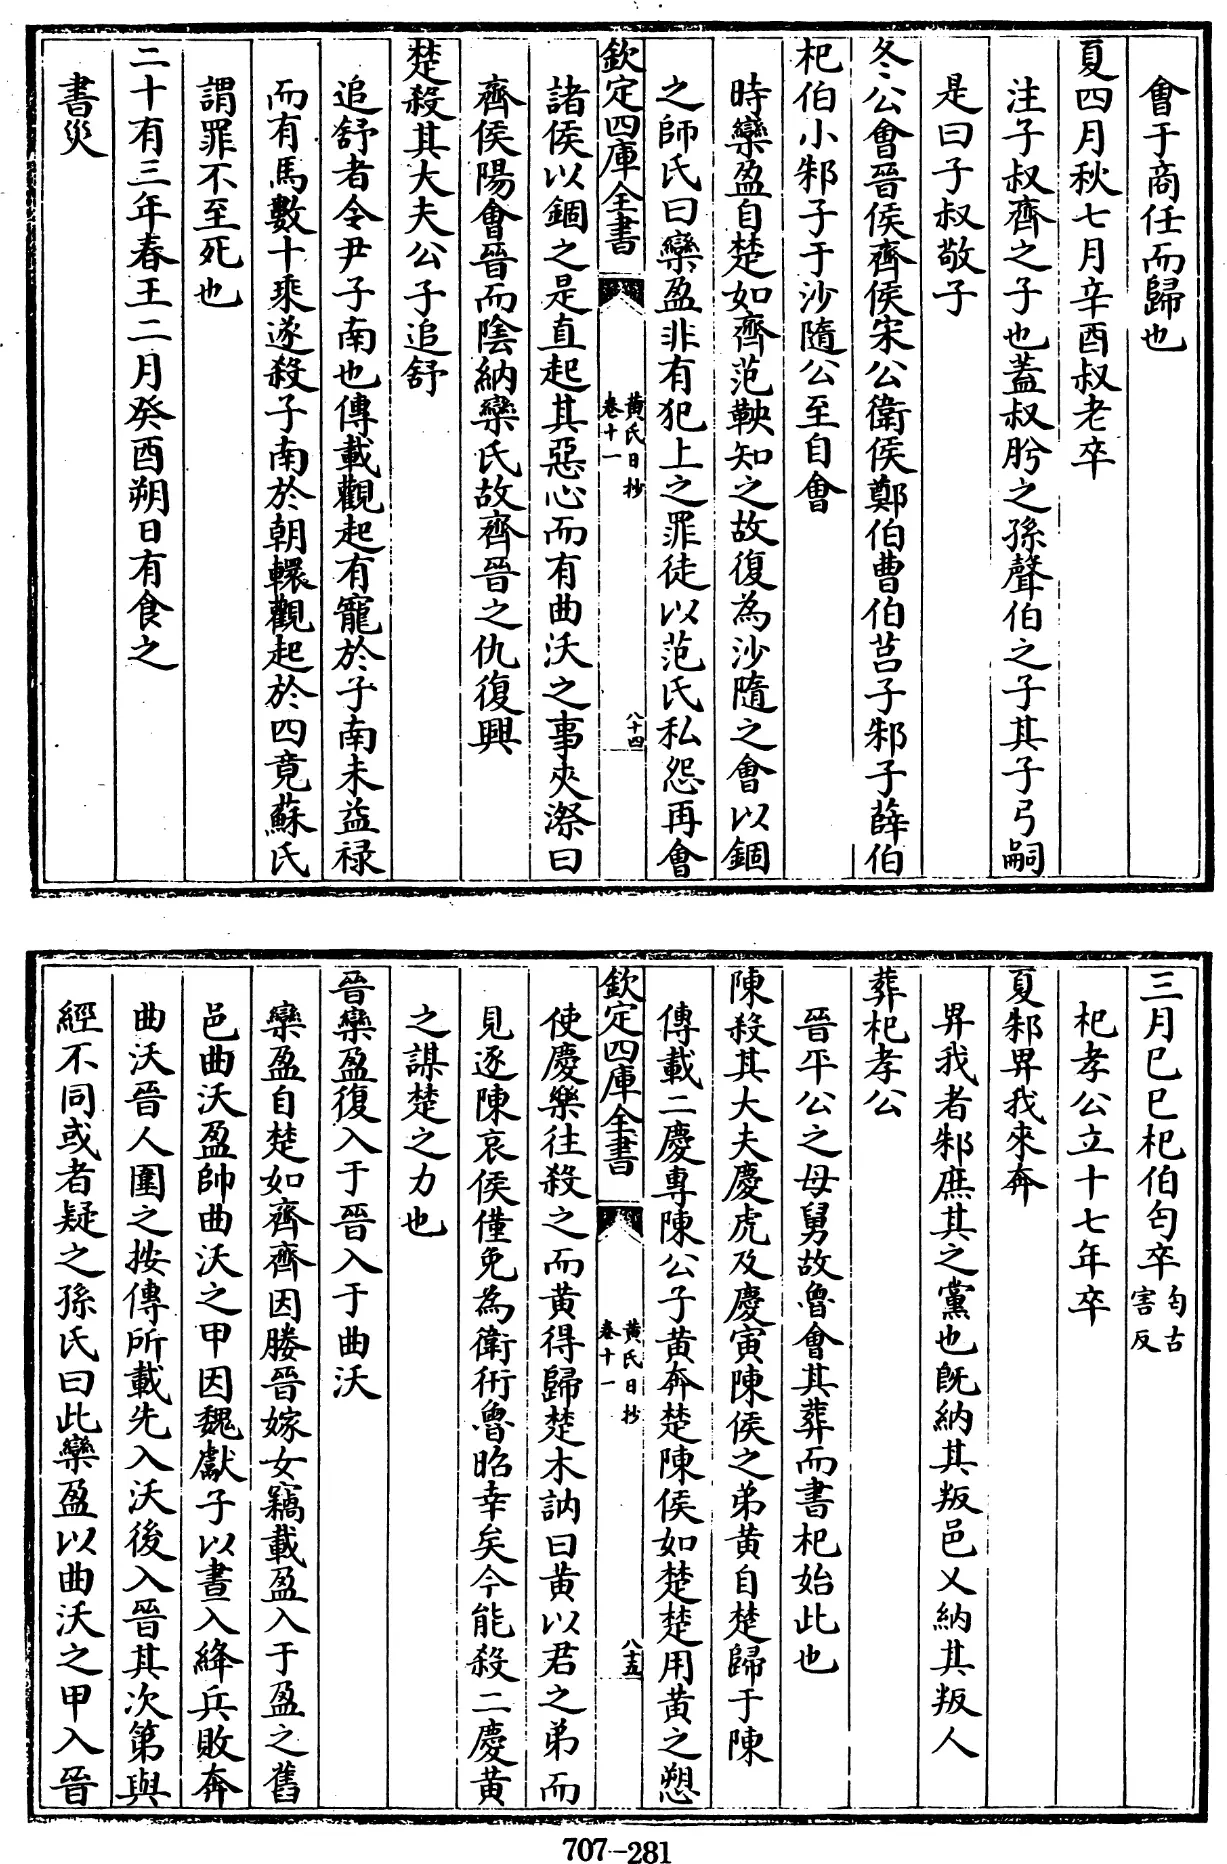 會于商任而歸也
夏四月秋七月辛酉叔老卒
注子叔齊之子也蓋叔肹之孫聲伯之子其子弓嗣
是曰子叔敬子
冬公會晉侯齊侯宋公衛侯鄭伯曹伯莒子邾子薛伯
杞伯小邾子于沙隨公至自會
時欒盈自楚如齊范鞅知之故復為沙隨之會以錮
之師氏曰欒盈非有犯上之罪徒以范氏私怨再會
欽定四庫全書
黃氏日抄
卷十一
八十四
諸侯以錮之是直起其惡心而有曲沃之事夾漈曰
齊侯陽會晉而陰納欒氏故齊晉之仇復興
楚殺其大夫公子追舒
追舒者令尹子南也傳載觀起有寵於子南未益祿
而有馬數十乘遂殺子南於朝轘觀起於四竟蘇氏
謂罪不至死也
二十有三年春王二月癸酉朔日有食之
書災
三月己巳杞伯匄卒
匄古
害反
杞孝公立十七年卒
夏邾畀我來奔
畀我者邾庶其之黨也既納其叛邑又納其叛人
葬杞孝公
晉平公之母舅故魯會其葬而書杞始此也
陳殺其大夫慶虎及慶寅陳侯之弟黃自楚歸于陳
傳載二慶專陳公子黃奔楚陳侯如楚楚用黃之愬
欽定四庫全書
黃氏日抄
卷十一
八十五
使慶樂往殺之而黃得歸楚木訥曰黃以君之弟而
見逐陳哀侯僅免為衛衎魯昭幸矣今能殺二慶黃
之謀楚之力也
晉欒盈復入于晉入于曲沃
欒盈自楚如齊齊因媵晉嫁女竊載盈入于盈之舊
邑曲沃盈帥曲沃之甲因魏獻子以晝入絳兵敗奔
曲沃晉人圍之按傳所載先入沃後入晉其次第與
經不同或者疑之孫氏曰此欒盈以曲沃之甲入晉
707-281